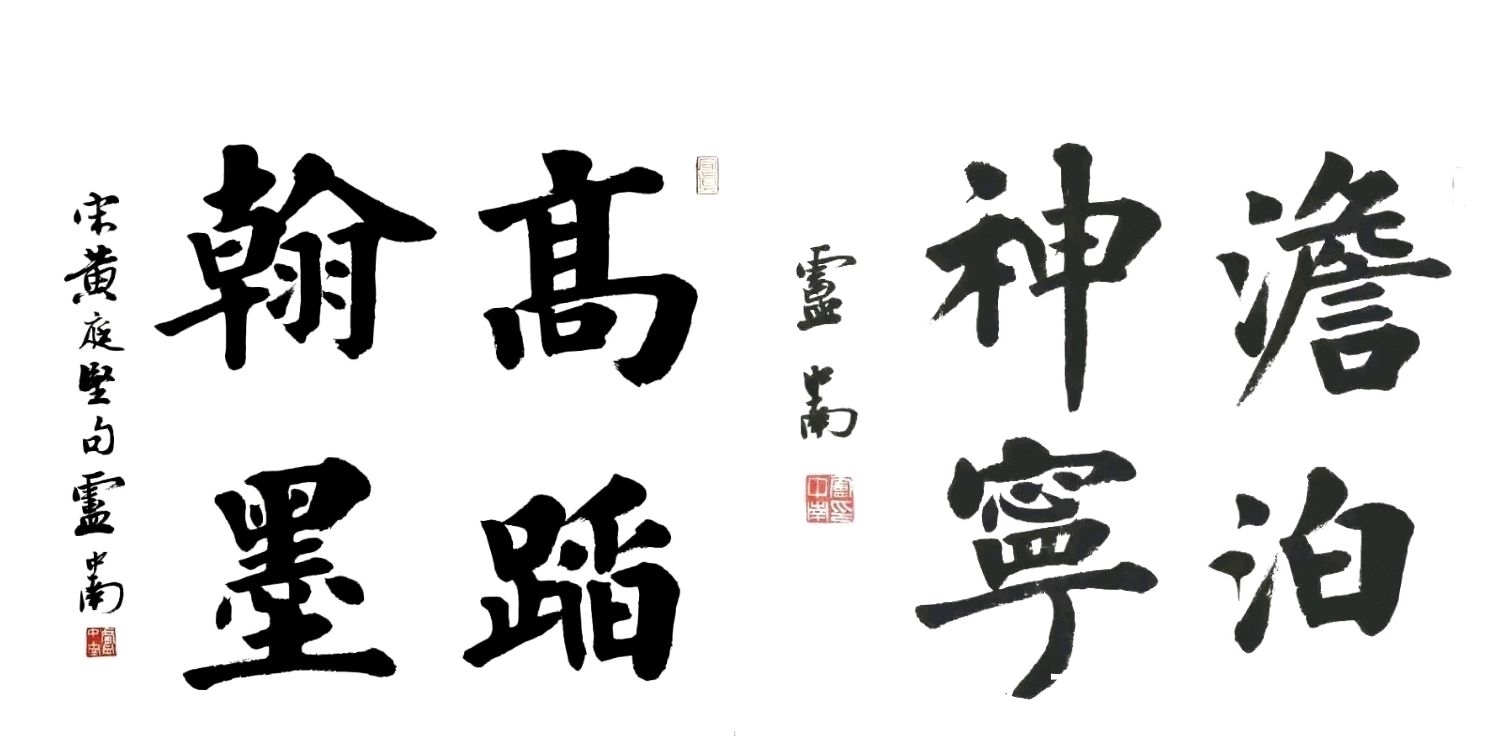 澹泊
神寧
盧中南
盧中南印
高蹈
翰墨
宋黃庭堅句盧中南
盧中南